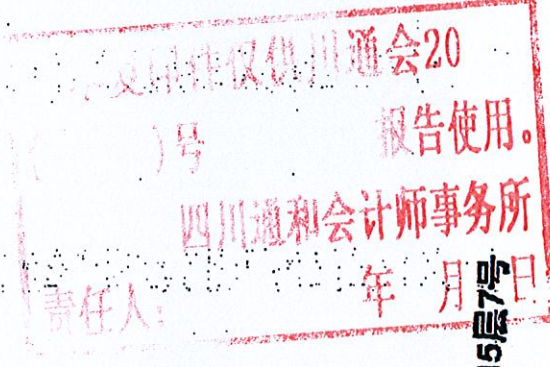 复印件仅供川通会20
( )号 报告使用。
四川通和会计师事务所
责任人: 年 月 日
15层7号